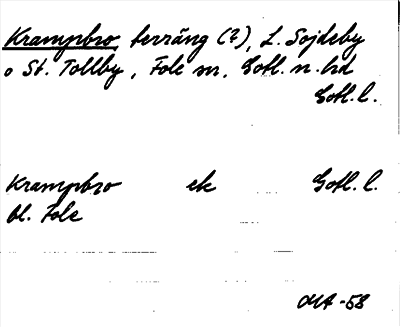 Krampbro, terräng (?), L. Sojdeby
o St. Tollby, Fole sn, Gotl. n. hd
Gotl. l.
Krampbro ek Gotl. l.
bl. Fole
OUA -58